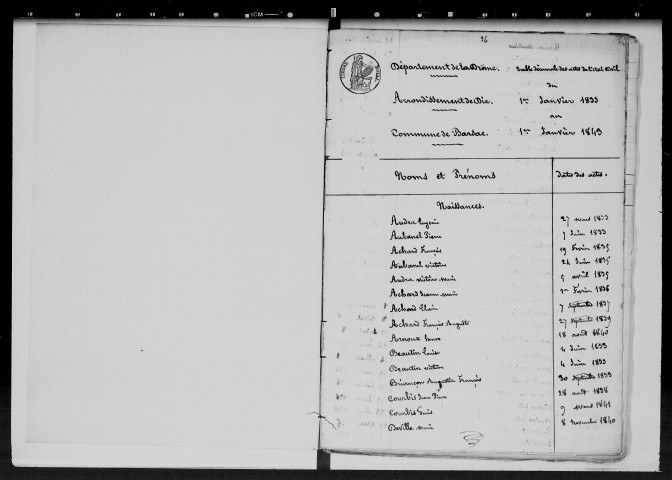 96
Département de la Drôme. Table décennale des actes de l'état civil
du
Arrondissement de Die. 1er Janvier 1833
au
Commune de Barsac. 1er Janvier 1843
Noms et Prénoms Dates des actes.
Naissances.
Audra Eugénie 27 mars 1833
Aubanel Pierre 7 Juin 1833
Achard François 19 Février 1835
Aubanel victoire 24 Juin 1835
Audra victoire marie 5 avril 1835
Achard Jeanne marie 1er Février 1836
Achard 7 septembre 1837
Achard François Auguste 27 septembre 1839
Arnoux 18 août 1840
Beautin Louis 4 Juin 1833
Beautin 4 Juin 1833
Briançon Augustin François 30 septembre 1833
Courbis Jean Pierre 28 août 1838
Courbis 9 mars 1841
Deville marie 8 novembre 1840